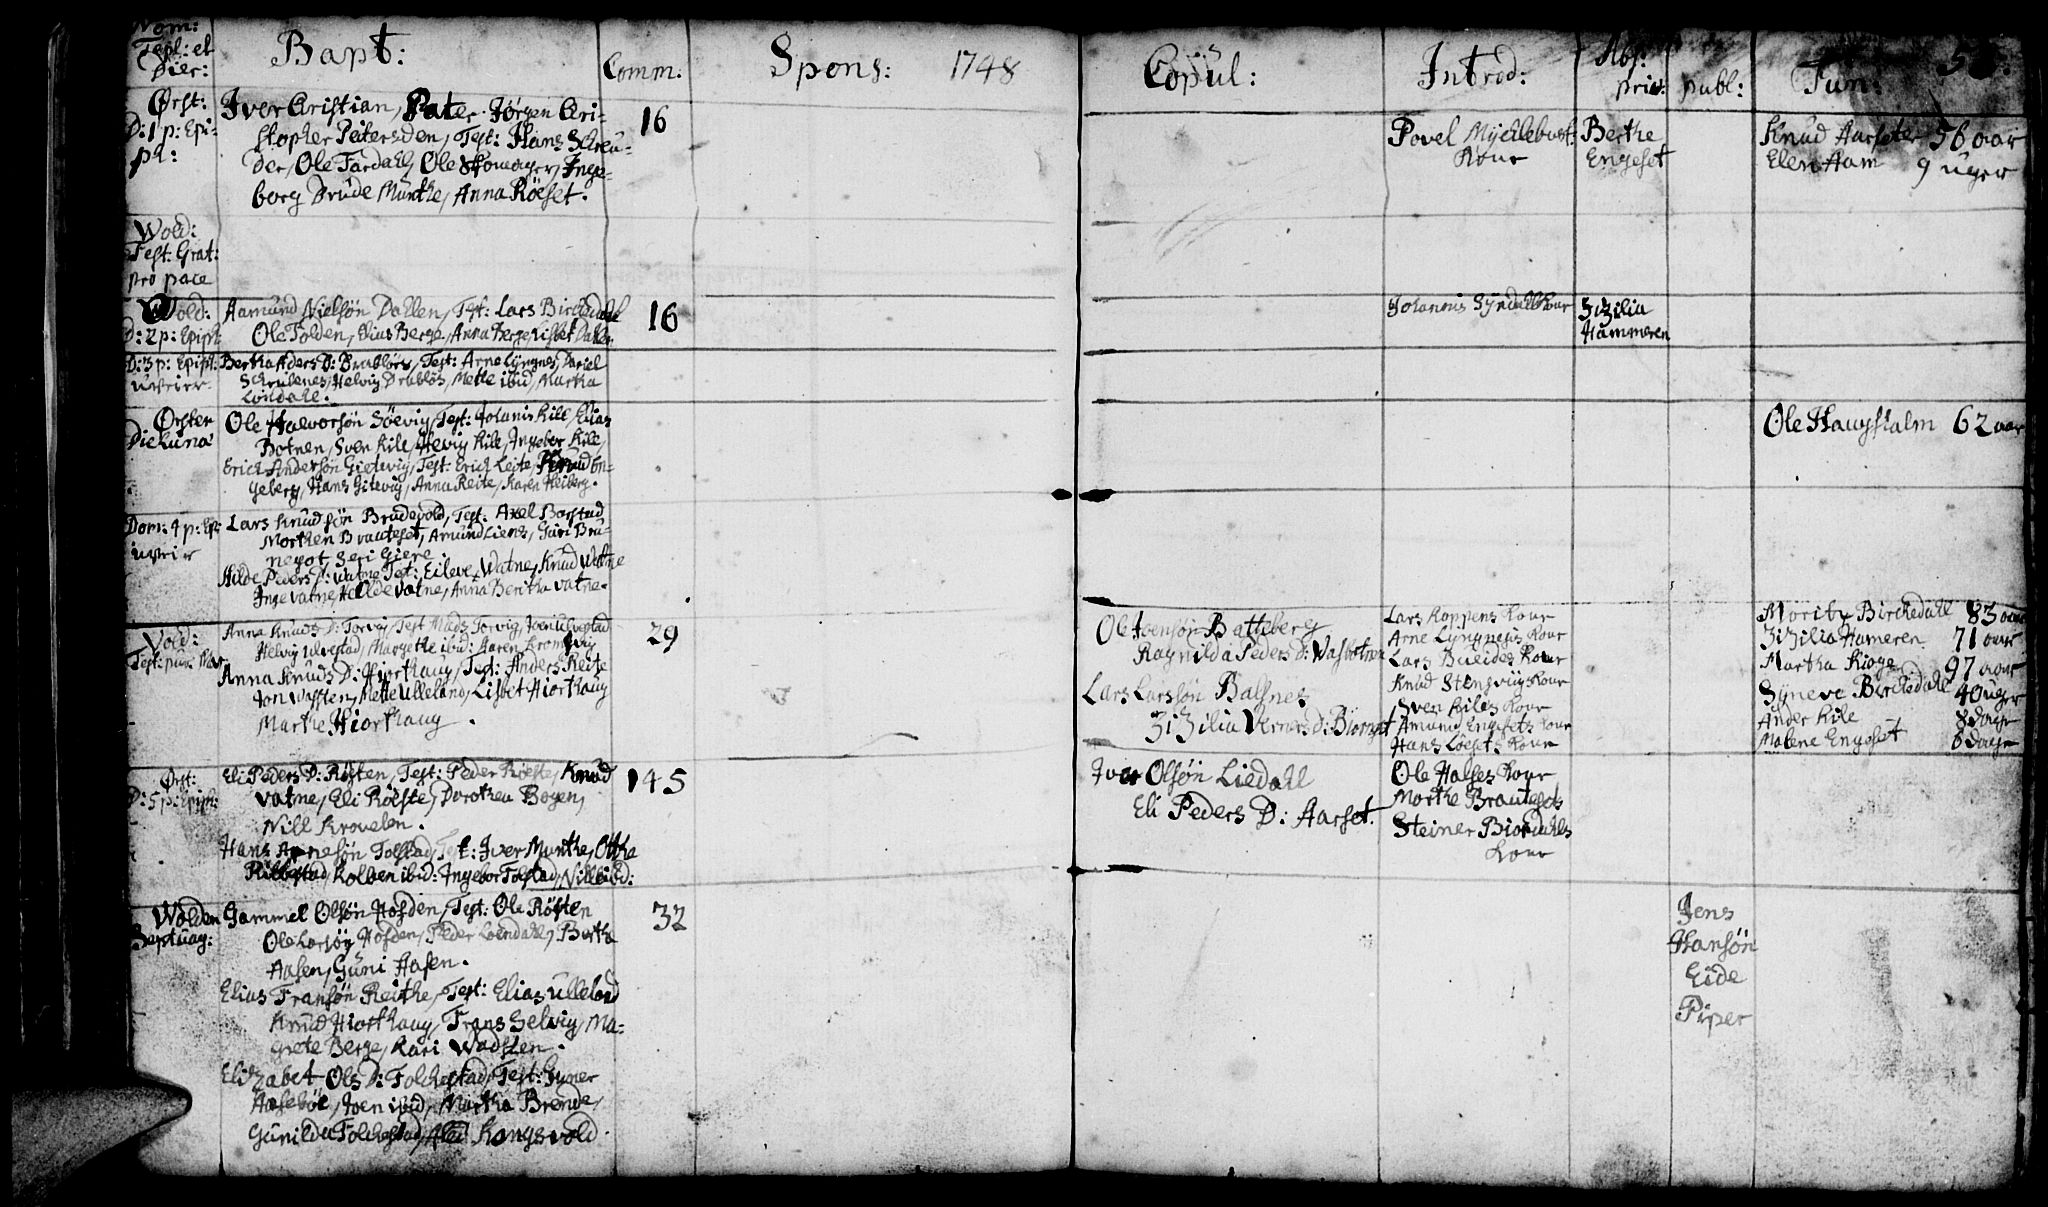 Nom:
Tepl: et
Dier:
Bapt:
Comm:
Spons:
1748
Copul:
Introd:
Abs:
priv:
publ:
Fun:
Ørst:
D: 1 p: Epi-
ph:
Iver Cristian, Pater Jørgen Cri-
stopher Petersden, Test: Hans Schreu-
der, Ole Fardahl, Ole Skomager, Inge-
borg Drude Munthe, Anna Röeset.
16
Povel Mycklebust:
Kone
Berthe
Engeset
Knud Aarseter 56 aar
Elen Aam 9 uger
Wold:
Fest: Grat:
pro pace
Wold:
D: 2 p: Epiph:
Aamund Nielsøn Dallen, Test: Lars Birchedahl
Ole Folden, Elias Berge, Anna Berge, Lisbet Dallen
16
Johannis Syndahls Kone
Zizilia
Hammeren
D: 3 p: Epiph:
Bertha Anders D: Brabløs, Test: Arne Lyngnes, Daniel
Helvig Drabløs, Mette ibid, Martha
Løndahl.
Ørsten
Die Lunæ
Ole Halvorsøn Söevig, Test: Johanis Kile, Elias
Botnen, Sven Kile, Helvig Kile, Ingebor Kile,
Erich Andersøn Gietevig, Test: Erich Leite, Knud En-
geberg, Hans Gitevig, Anna Reite, Karen Heiberg.
Ole Haugsholm 62 aar
Dom: 4 p: Ep:
Lars Knudsøn Brudevold, Test: Axel Barstad
Morthen Brauteset, Amund Liens, Guri Bru-
negot, Seri Giere
Hilde Peders D: Vatne Test: Eileve Watne, Knud Watne
Inge Vatne, Hilde Vatne, Anna Beritha Vatne.
Vold:
Fest: pur: Mar
Anna Knuds D: Torvig, Test Mads Torvig, Joen Ulvestad
Helvig Ulvestad, Margethe ibid: Karen Kromsvig
Anna Knuds D: Hiorthaug, Test: Anders Reite
Jon Watsten, Mette Ulleland, Lisbet Hiorthaug
Marthe Hiorthaug.
29
Ole Joensøn Batteberg
Ragnilda Peders D: Vasbotnen
Lars Larssøn Balsnes
Zizilia Verners D: Biørnset
Lars Koppens Kone
Arne Lyngnesis Kone
Lars Bueides Kone
Knud Stensvigs Kone
Sven Kiles Kone
Amund Engesets Kone
Hans Löesets Kone
Moritz Birchedahl 83 aar
Zizilia Hameren 71 aar
Martha Kioge 97 aar
Syneve Birchedahl 40 uger
Ander Kile 8 dage
Malene Engeset 8 dage
Ørst:
D: 5 p: Epiph:
Eli Peders D: Røsten, Test: Peder Röeste, Knud
Vatne, Eli Röeste, Dorothea Boyen,
Nill Krovelen.
Hans Arnesøn Folstad, Test: Iver Munthe, Ottha
Rølbstad, Kolben ibid: Ingebor Folstad, Nille ibid:
145
Iver Olsøn Liedahl
Eli Peders D: Aarset.
Ole Halses Kone
Morthe Brautesets
Steiner Biordahls
Kone
Wolden
Septuag:
Gammel Olsøn Hofden, Test: Ole Røsten
Ole Larssøn Hofden, Peder Loendahl, Bertha
Aasen, Guni Aasen.
Elias Fransøn Reithe, Test: Elias Ulleland
Knud Hiorthaug, Frans Selvig, Ma-
grete Berge, Kari Wadsten.
Elizabet Ols D: Folchestad, Test: Gunner
Aaseböe, Joen ibid, Martha Brende,
Gunilda Folchestad, Kongsvold.
32
Jens
Hansøn
Eide
Piper